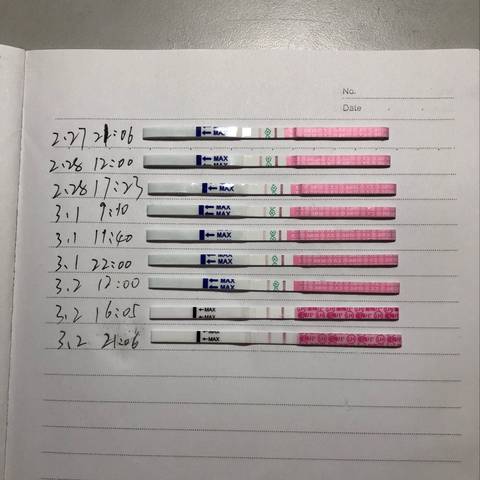 No.
Date
2.27 21:06 MAX
2.28 12:00 MAX
2.28 17:23 MAX
3.1 9:10 MAX
3.1 19:40 MAX
3.1 22:00 MAX
3.2 12:00 MAX
3.2 16:05 MAX
3.2 21:06 MAX